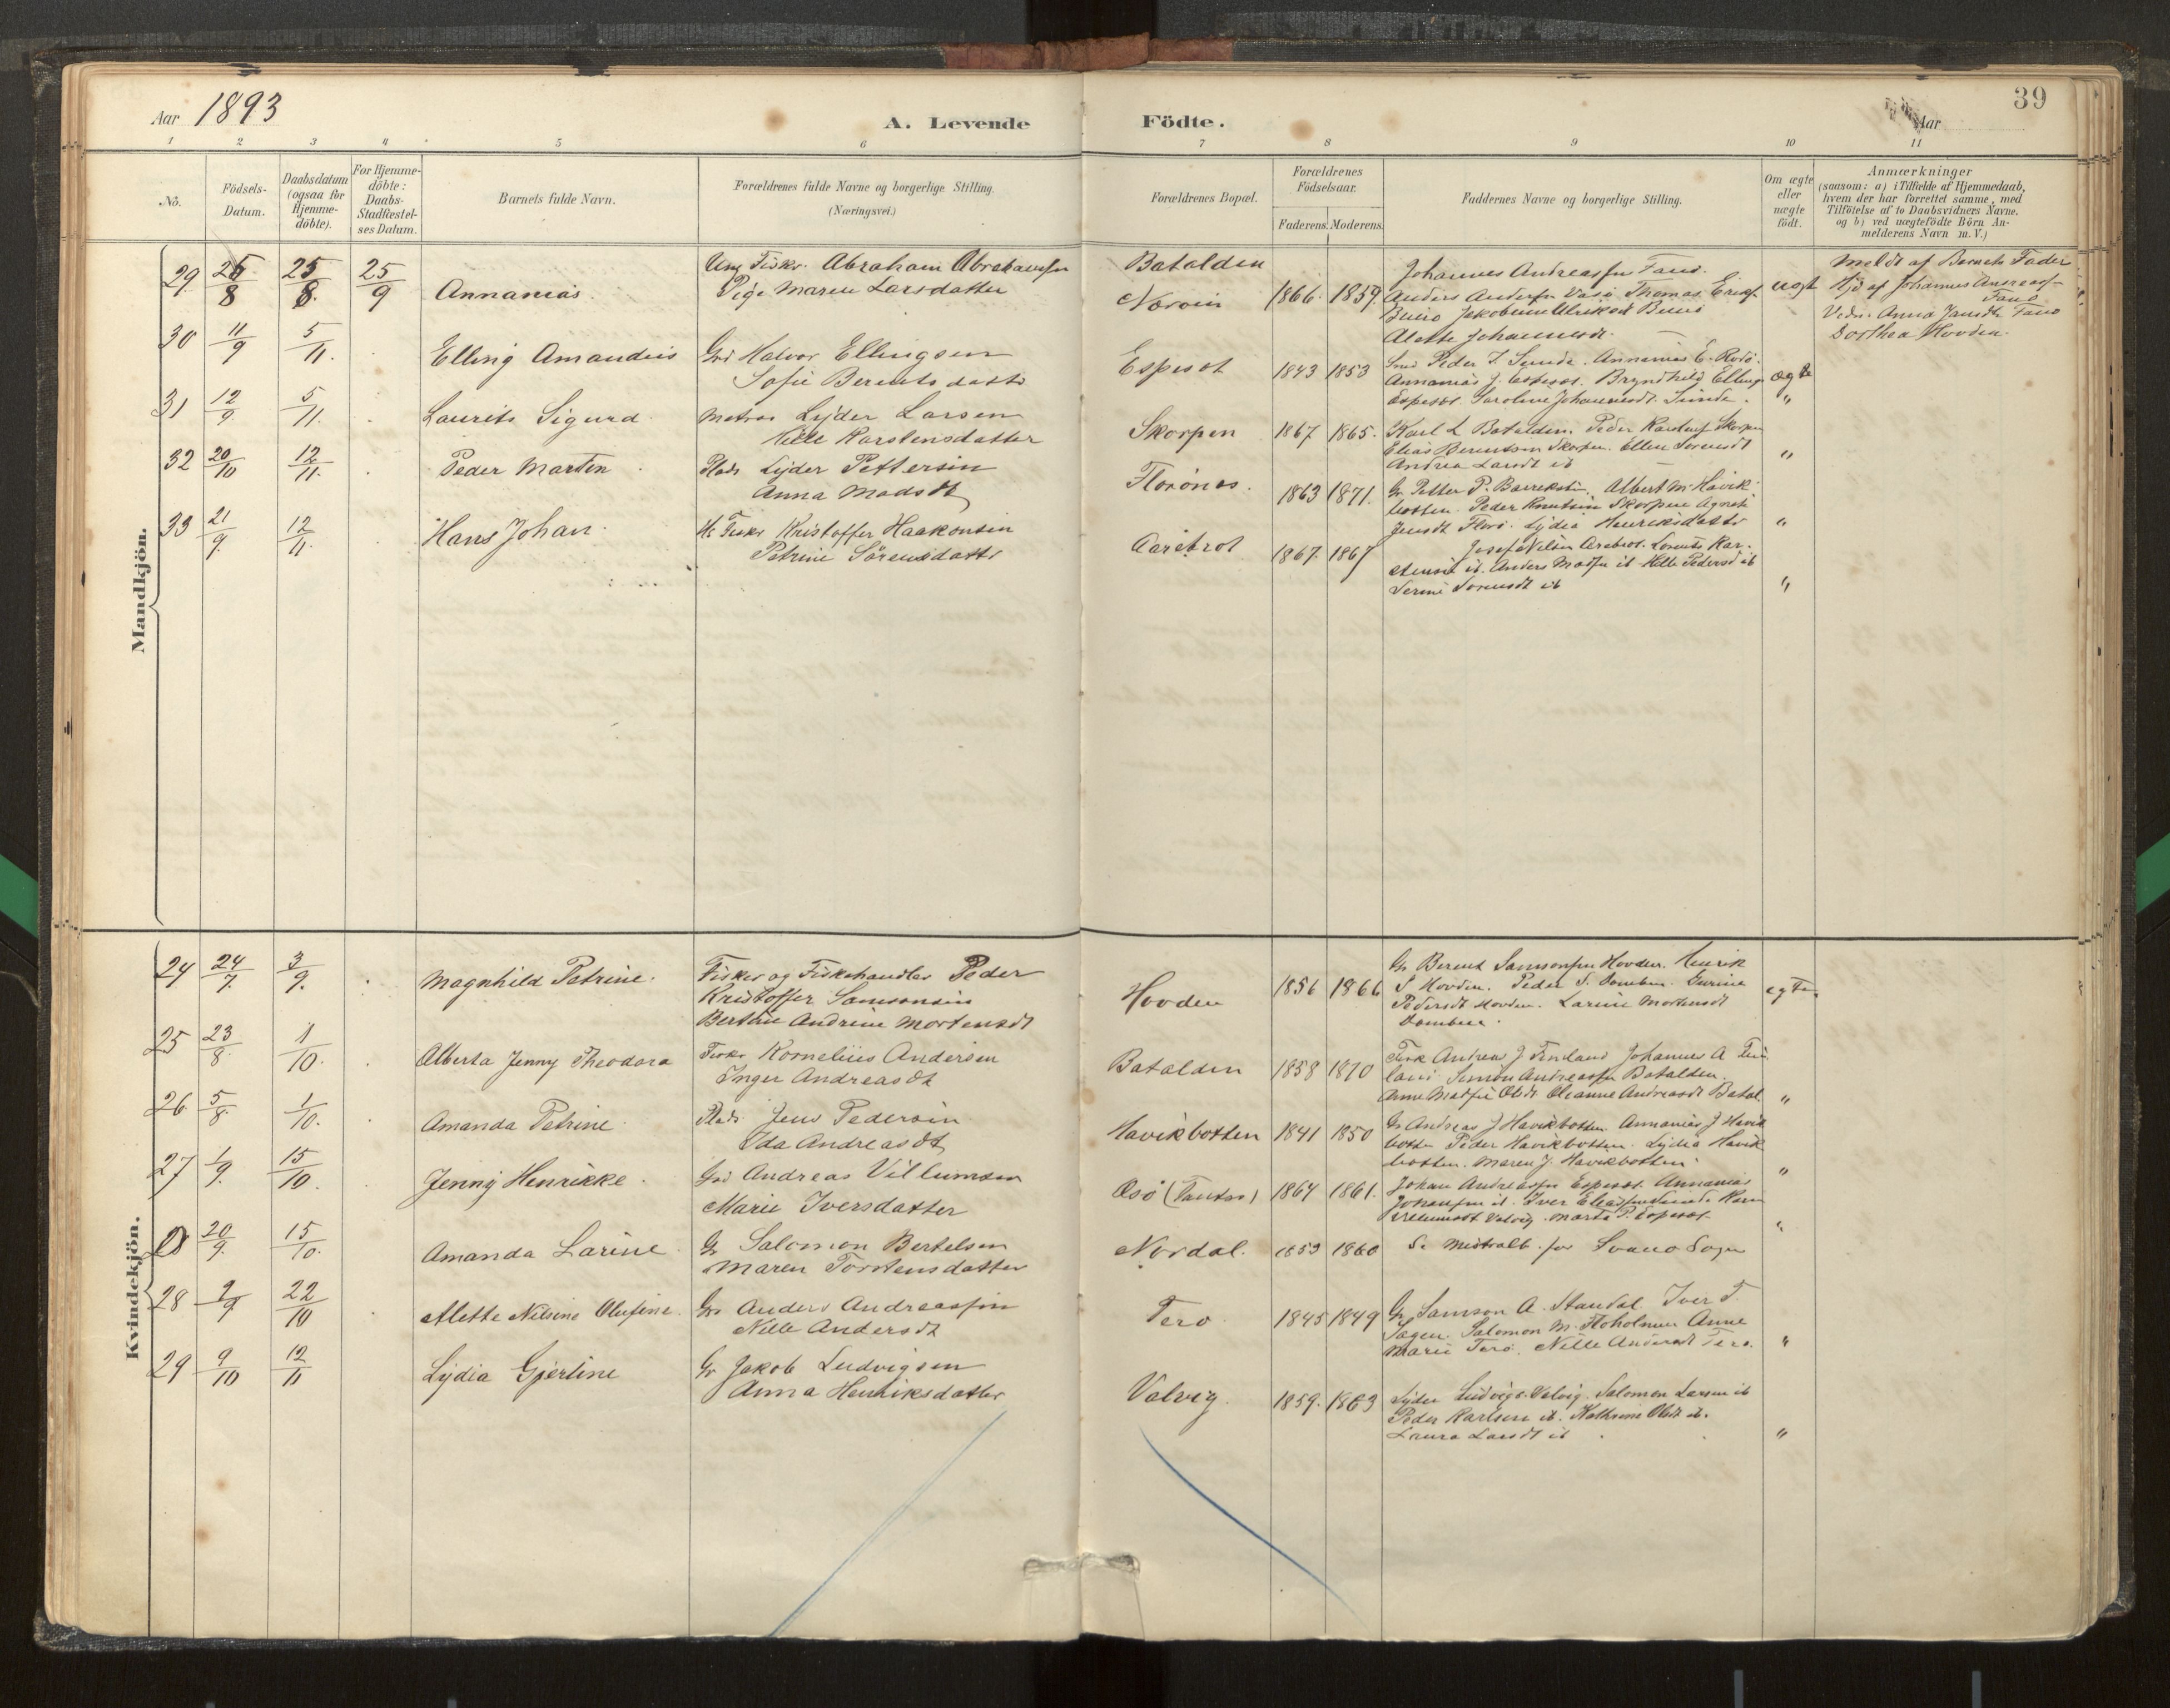 Aar 1893
A. Levende
Födte.
39
Aar
1 2 3 4 5 6 7 8 9 10 11
No.
Födsels-Datum.
Daabsdatum (ogsaa for Hjemme-döbte).
For Hjemme-döbte: Daabs-Stadfæstel-ses Datum.
Barnets fulde Navn.
Forældrenes fulde Navne og borgerlige Stilling.
(Næringsvei.)
Forældrenes Bopæl.
Forældrenes Födselsaar.
Faderens. Moderens.
Faddernes Navne og borgerlige Stilling.
Om ægte eller uægte födt.
Anmærkninger
(saasom: a) i Tilfælde af Hjemmedaab,
hvem der har forrettet samme, med
Tilföielse af to Daabsvidners Navne,
og b) ved uægtefödte Börn An-
melderens Navn m. V.)
Mandkjön.
29. 25/8 25/8. 25/9 Annanias.
Ung. Fisker. Abraham Abrahamsen
Pige Maren Larsdatter
Batalden
1866. 1859.
Johannes Andreassen Fanö.
Anders Andersen
Alette Johannesdt.
uægt
Meldt af Barnets Fader
Hjd af Johannes Andreass.
Fanö
Vidn. Anna Jansdt Fanö
Dorthea Hovden.
30 11/9 5/11. Elling Amandus
Grd Halvor Ellingsen
Sofie Berentsdatter
Espeset
1843 1853
Peder J. Sunde. Annanias E.
Annanias J. Espeset. Bryndhild Ellings
Espeset Saroline Johannesdt. Sunde.
ægte
"
31 12/9. 5/11. Laurits Sigurd.
Matros Lyder Larsen
Nille Karstensdatter
Skorpen
1867 1865.
Karl L Batalden. Peder Karlsen Skorpen
Elias Berentsen Skorpen. Ellen Sorensdt
Andrea Larsdt ib
"
32 20/10 12/11. Peder Martin
Plads Lyder Pettersen
Anna Madsdt
Florönes.
1863 1871.
Gr. Petter P. Albert M. Havik
botten. Peder Knutsen Skorpen Agnete
Jensdt Florö. Lydia Henriksdatter
"
33 21/9. 12/11. Hans Johan.
Fisker Kristoffer Haakonsen
Petrine Sörensdatter
Aarebrot
1867. 1867
Josef Nilsen Arebrot. Lorents Kar-
stensen ib. Anders Madsen ib Nille Pedersdt ib
Serine Sorensdt ib
"
Kvindekjön.
24 24/7. 3/9. Magnhild Petrine.
Fisker og Fiskehandler Peder
Kristoffer Samsonsen
Bertine Andrine Mortensdt
Hovden
1856 1866
Gr Berent Samsonsen Hovden. Henrik
S Hovden. Peder S. Dombe. Gurine
Pedersdt Hovden. Larine Mortensdt
ægte.
25 23/8. 1/10. Alberta Jenny Theodora
Fisker Kornelius Andersen
Inger Andreasdt
Batalden
1858 1870
Fisk Andreas J. Johannes A
Simon Andreassen Batalden.
Oleanne Andreasdt Batal.
"
26. 5/8. 1/10. Amanda Petrine.
Plads. Jens Pedersen
Ida Andreasdt
Havikbotten
1841 1850
Gr Andreas J Havikbotten. Annanias J Havik
botten Peder Havikbotten. Lydia Havik
botten. Maren J. Havikbotten.
"
27 1/9. 15/10. Jenny Henrikke.
Grd Andreas Villumsen
Marie Iversdatter
1864 1861.
Johan Andreassen Espeset. Annanias
Johansen ib. Iver Eliassen Sunde
Villumsdt Valvig. Marta P. Espeset
"
20/9. 15/10. Amanda Larine.
Gr Salomon Bertelsen
Maren Torstensdatter
Nordal.
1853 1860
Se Ministralb. for Svanö Sogn
28 2/9 22/10 Alette Nilsine Olufine.
Gr. Anders Andreassen
Nille Andersdt
Terö
1845 1849
Gr Samson A. Standal. Iver T.
Salomon M. Anne
Marie Terö. Nille Andersdt Terö.
"
29 9/10 12/11 Lydia Gjertine
Gr Jakob Ludvigsen
Anna Henriksdatter
Valvig.
1859. 1863
Lyder Ludvigs. Valvig. Salomon Larsen ib
Peder Karlsen ib. Kathrine Olsdt ib.
Laura Larsdt ib
"